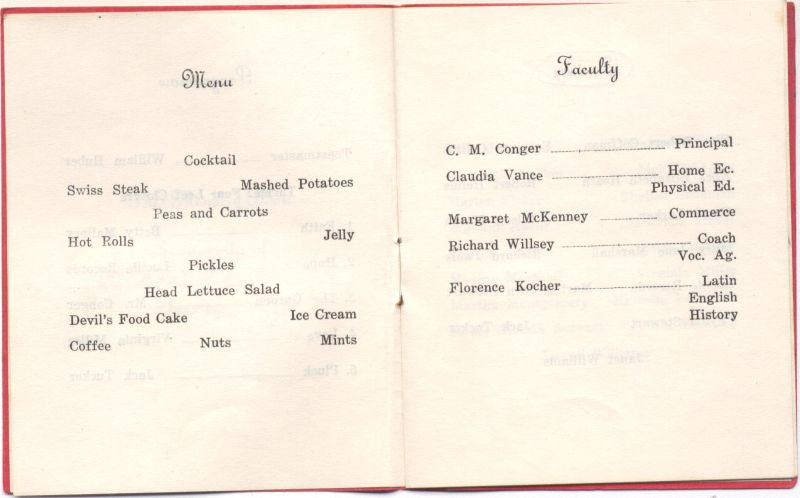 Menu
Cocktail
Swiss Steak Mashed Potatoes
Peas and Carrots
Hot Rolls Jelly
Pickles
Head Lettuce Salad
Devil's Food Cake Ice Cream
Coffee Nuts Mints
Faculty
C. M. Conger Principal
Claudia Vance Home Ec.
Physical Ed.
Margaret McKenney Commerce
Richard Willsey Coach
Voc. Ag.
Florence Kocher Latin
English
History